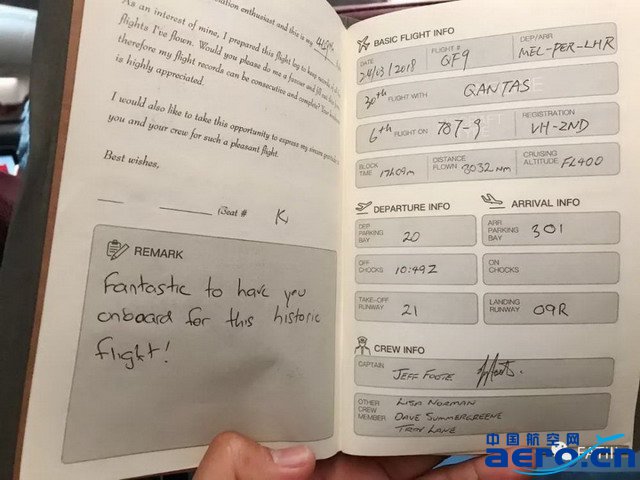 aviation enthusiast and this is my 415th
As an interest of mine, I prepared this flight log to keep records of all
flights I've flown. Would you please do me a favour and fill out this
therefore my flight records can be consecutive and complete? Your
is highly appreciated.
I would also like to take this opportunity to express my sincere gratitude to
you and your crew for such a pleasant flight.
Best wishes,
Seat # K
REMARK
Fantastic to have you
onboard for this historic
flight!
BASIC FLIGHT INFO
DATE 24/03/2018
FLIGHT # QF9
DEP/ARR MEL-PER-LHR
30th FLIGHT WITH QANTAS
6th FLIGHT ON 787-9
REGISTRATION VH-ZND
BLOCK TIME 17H09m
DISTANCE FLOWN 8032 NM
CRUISING ALTITUDE FL400
DEPARTURE INFO
DEP PARKING BAY 20
OFF CHOCKS 10:49Z
TAKE-OFF RUNWAY 21
ARRIVAL INFO
ARR PARKING BAY 301
ON CHOCKS
LANDING RUNWAY 09R
CREW INFO
CAPTAIN JEFF FOOTE
OTHER CREW MEMBER
LISA NORMAN
DAVE SUMMERGREENE
TROY LANE
中国航空网
aero.cn